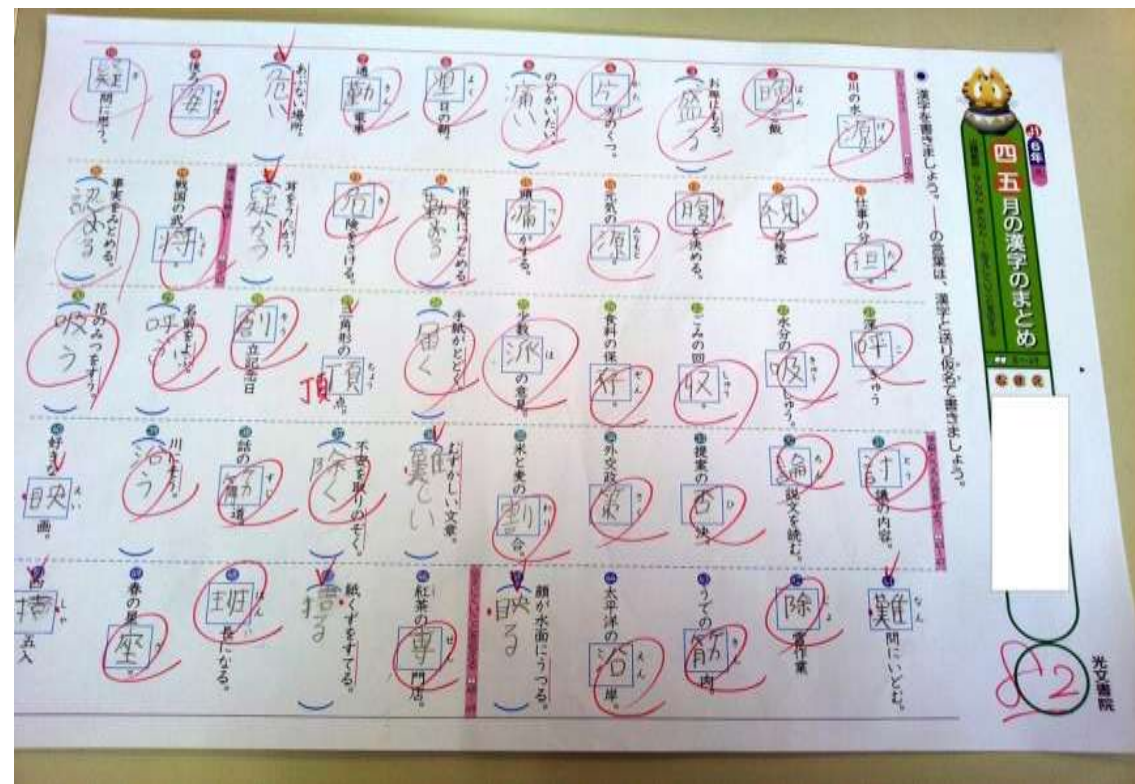 小6年
四五月の漢字のまとめ
なまえ
82
光文書院
●漢字を書きましょう。――の言葉は、漢字と送り仮名で書きましょう。
川の水源
晩ご飯
お皿にもる。盛る
片方のくつ。
のどがいたい。痛い
翌日の朝。
通勤電車
あぶない場所。危い
後ろ姿
疑問に思う。
仕事の分担。
視力検査
腹を決める。
元気の源。
頭痛がする。
市役所につとめる。勤める
危険をさける。
耳をうたがう。疑がう
戦国の武将。
事実をみとめる。認める
深呼きゅう
水分の吸しゅう。
ごみの回収。
食料の保存。
少数派の意見。
手紙がとどく。届く
三角形の頂点。
頂
創立記念日
名前をよぶ。呼ぶ
花のみつをすう。吸う
討議の内容。
論説文を読む。
提案の否決。
外交政策。
米と麦の割合。
むずかしい文章。難しい
不要を取りのぞく。除く
話の筋道。
川にそう。沿う
好きな映画。
難問にいどむ。
除雪作業
うでの筋肉。
太平洋の沿岸。
顔が水面にうつる。映る
紅茶の専門店。
紙くずをすてる。捨る
班長になる。
春の星座。
四捨五入